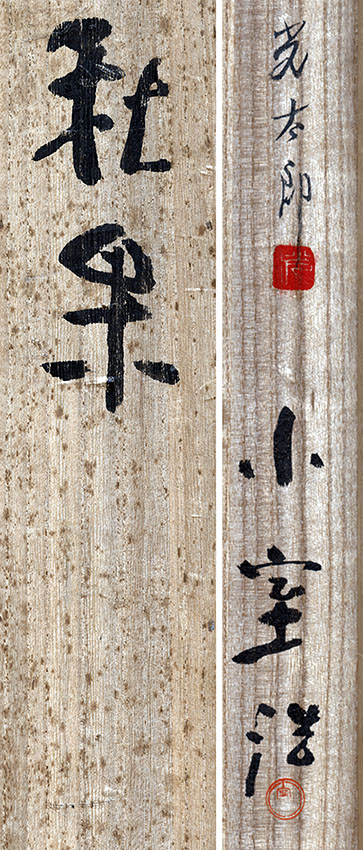 秋果
光太郎
小室浩